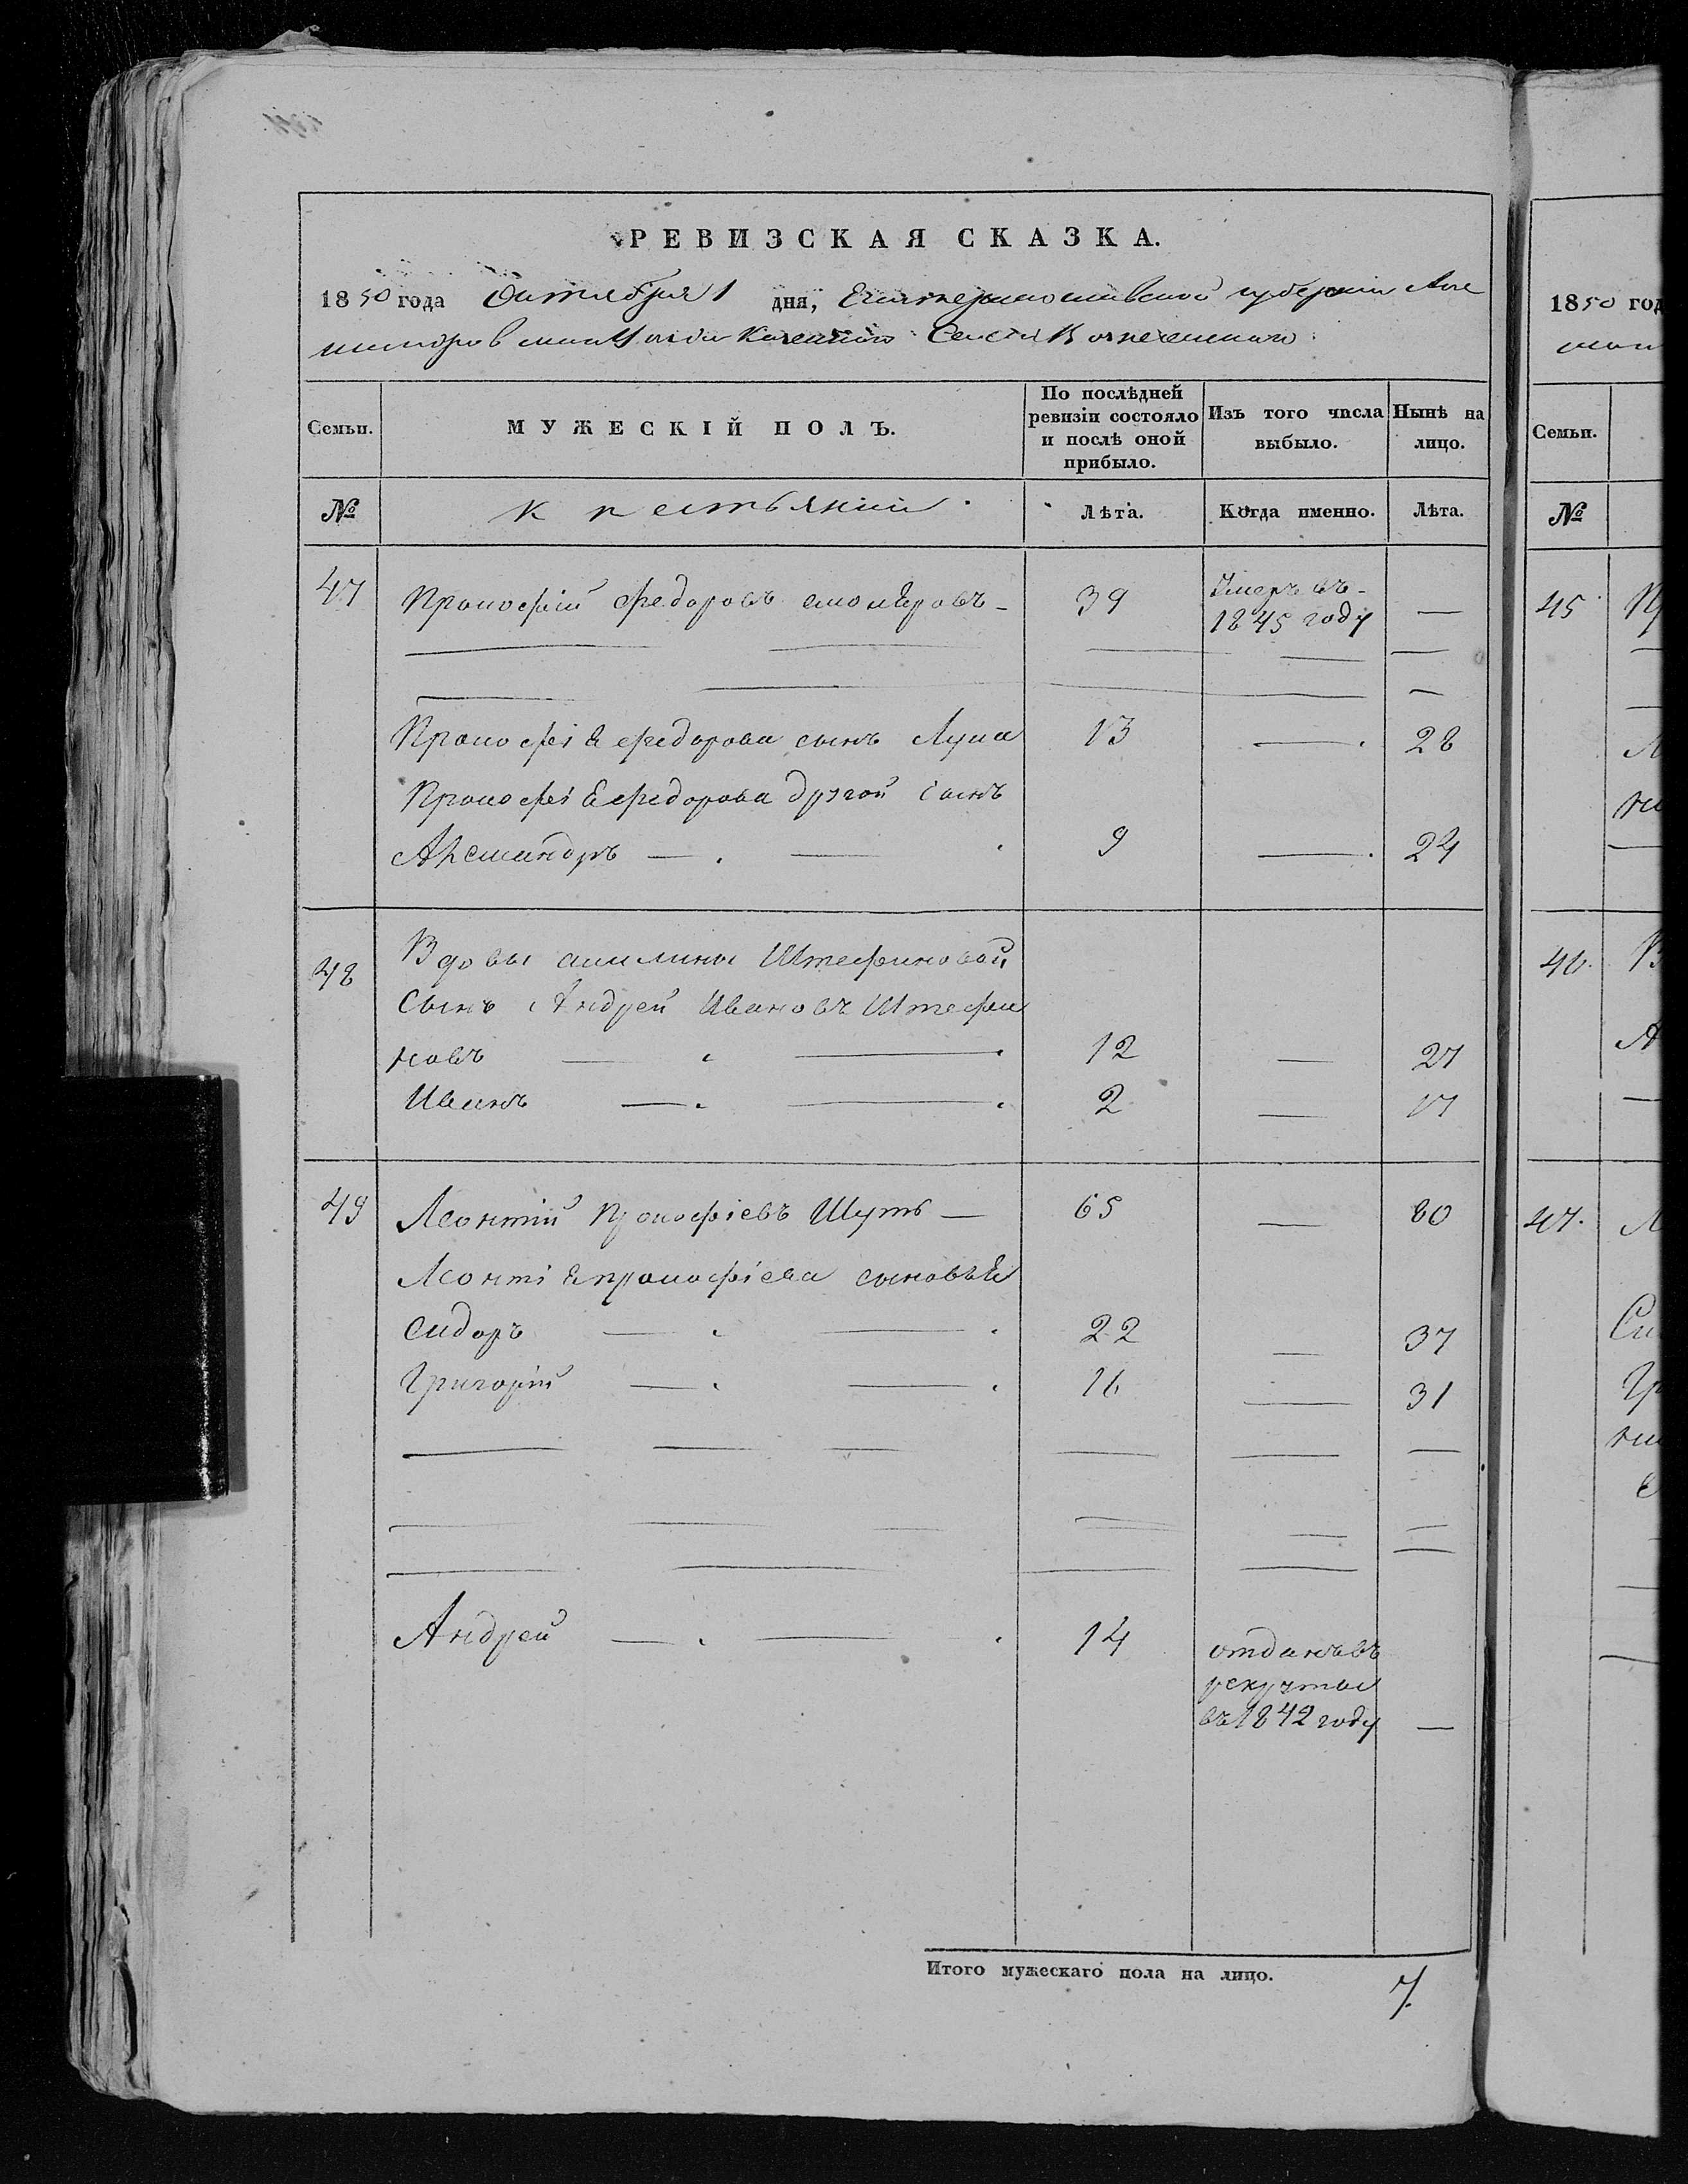 РЕВИЗСКАЯ СКАЗКА.
1850 года Октября 1 дня, Екатеринославской губерніи Але
ксандров Казеннаго Села Вознесенскаго
Семьи.
МУЖЕСКІЙ ПОЛЪ.
По послѣдней
ревизіи состояло
и послѣ оной
прибыло.
Изъ того числа
выбыло.
Нынѣ на
лицо.
№
Крестьяніи
Лѣта.
Когда именно.
Лѣта.
47 Прокофій Федоровъ 39 Умеръ въ
1845 году —
Прокофіѣ Федорова сынъ Лука 13 — 28
Прокофіѣ Федорова другой сынъ
Александръ — 9 — 24
48 Вдовы Акилины Штефановой
Сынъ Андрей Ивановъ Штефа
новъ — 12 — 27
Иванъ — 2 — 17
49 Леонтій Прокофіевъ Шутъ — 65 — 80
Леонтіѣ Прокофіева сыновьѣ
Сидоръ — 22 — 37
Григорій — 16 — 31
Андрей — 14 отданъ въ
рекруты
въ 1842 году —
Итого мужескаго пола на лицо. 7.
1850 год
Семьи.
№
45
46.
47.